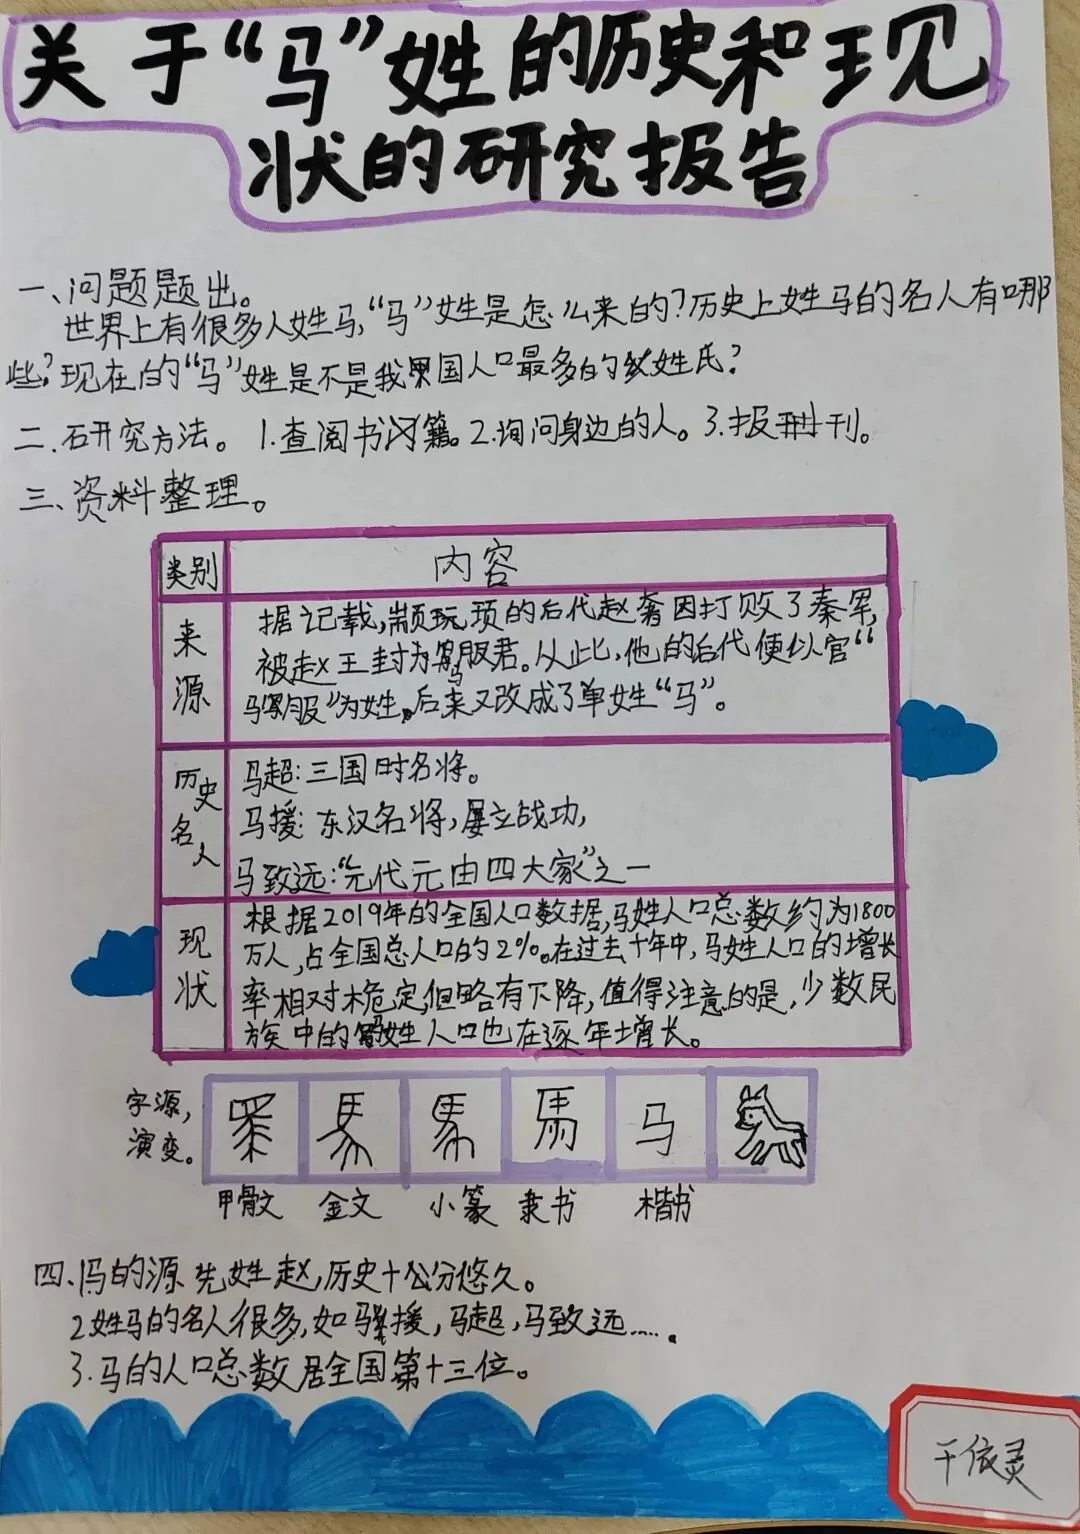 关于“马”姓的历史和现
状的研究报告
一、问题题出。
世界上有很多人姓马,“马”姓是怎么来的?历史上姓马的名人有哪
些?现在的“马”姓是不是我国人口最多的姓氏?
二.研究方法。 1.查阅书籍。2.询问身边的人。3.报刊。
三、资料整理。
类别 内容
来源
据记载,颛顼的后代赵奢因打败了秦军,
被赵王封为马服君。从此,他的后代便以官“
马服”为姓。后来又改成了单姓“马”。
历史名人
马超:三国时名将。
马援:东汉名将,屡立战功,
马致远:“元代元由四大家”之一
现状
根据2019年的全国人口数据,马姓人口总数约为1800
万人,占全国总人口的2%。在过去十年中,马姓人口的增长
率相对桅定,但略有下降,值得注意的是,少数民
族中的姓人口也在逐年增长。
字源,
演变。
馬 马
甲骨文 金文 小篆 隶书 楷书
四、马的源先姓赵,历史十分悠久。
2姓马的名人很多,如援,马超,马致远......。
3.马的人口总数居全国第十三位。
依灵